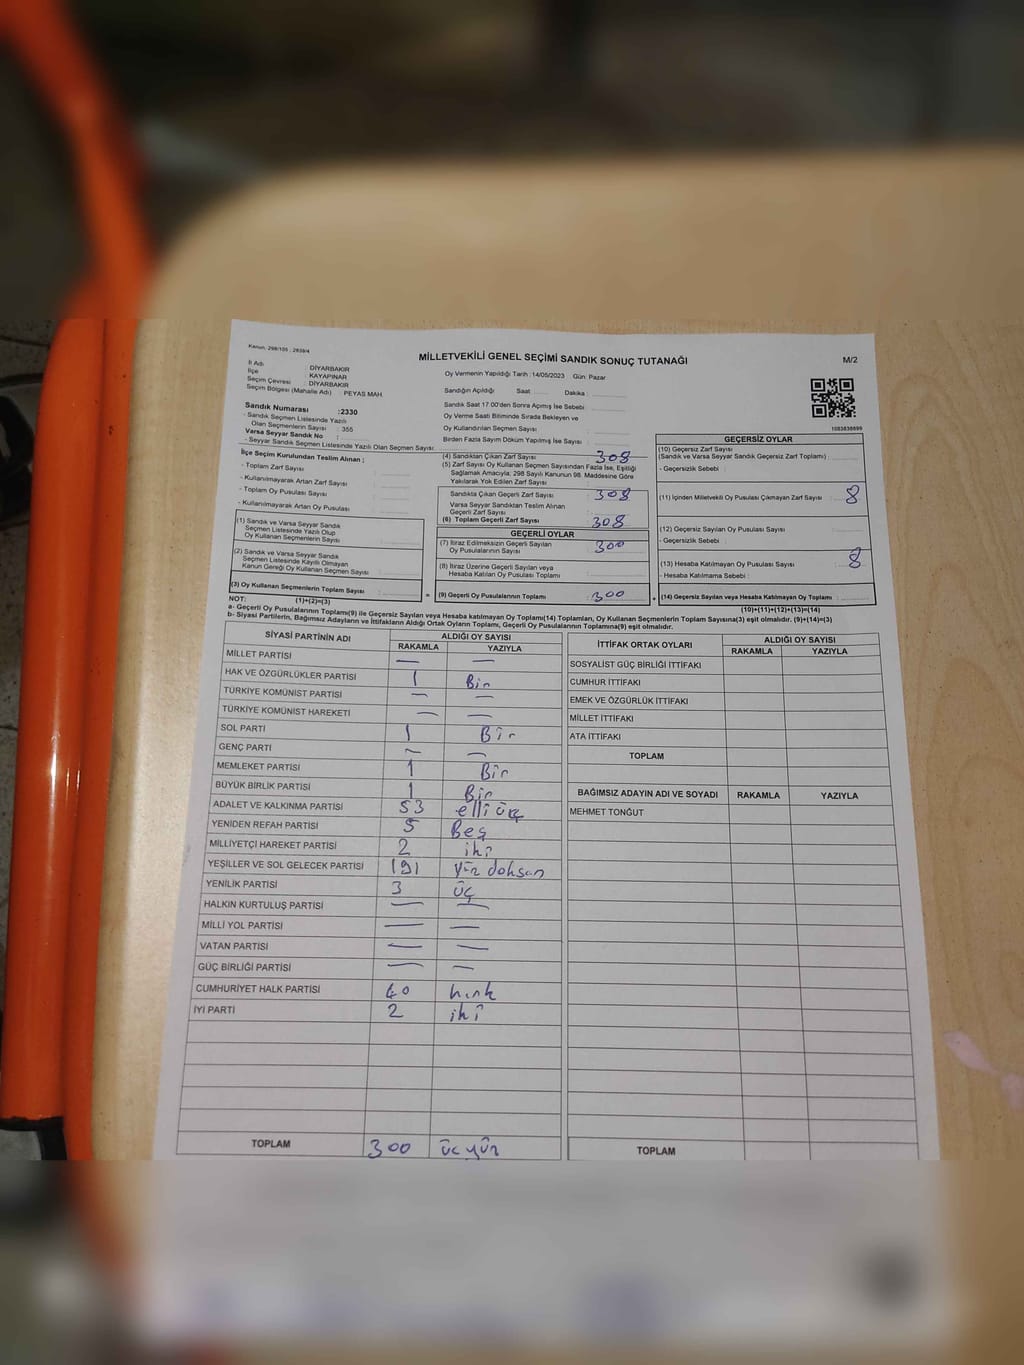 Kanun, 298/105 ; 2839/4
MİLLETVEKİLİ GENEL SEÇİMİ SANDIK SONUÇ TUTANAĞI
M/2
İl Adı : DİYARBAKIR
İlçe : KAYAPINAR
Seçim Çevresi : DİYARBAKIR
Seçim Bölgesi (Mahalle Adı) : PEYAS MAH.
Sandık Numarası :2330
- Sandık Seçmen Listesinde Yazılı
Olan Seçmenlerin Sayısı : 355
Varsa Seyyar Sandık No :
- Seyyar Sandık Seçmen Listesinde Yazılı Olan Seçmen Sayısı:
Oy Vermenin Yapıldığı Tarih : 14/05/2023 Gün: Pazar
Sandığın Açıldığı Saat Dakika :
Sandık Saat 17:00'den Sonra Açımış İse Sebebi
Oy Verme Saati Bitiminde Sırada Bekleyen ve
Oy Kullandırılan Seçmen Sayısı
Birden Fazla Sayım Döküm Yapılmış İse Sayısı
1083838699
İlçe Seçim Kurulundan Teslim Alınan :
- Toplam Zarf Sayısı :
- Kullanılmayarak Artan Zarf Sayısı :
- Toplam Oy Pusulası Sayısı :
- Kullanılmayarak Artan Oy Pusulası :
(1) Sandık ve Varsa Seyyar Sandık
Seçmen Listesinde Yazılı Olup
Oy Kullanan Seçmenlerin Sayısı :
(2) Sandık ve Varsa Seyyar Sandık
Seçmen Listesinde Kayıtlı Olmayan
Kanun Gereği Oy Kullanan Seçmen Sayısı :
(3) Oy Kullanan Seçmenlerin Toplam Sayısı :
(1)+(2)=(3)
(4) Sandıktan Çıkan Zarf Sayısı : 308
(5) Zarf Sayısı Oy Kullanan Seçmen Sayısından Fazla İse, Eşitliği
Sağlamak Amacıyla, 298 Sayılı Kanunun 98. Maddesine Göre
Yakılarak Yok Edilen Zarf Sayısı :
Sandıkta Çıkan Geçerli Zarf Sayısı : 308
Varsa Seyyar Sandıktan Teslim Alınan
Geçerli Zarf Sayısı :
(6) Toplam Geçerli Zarf Sayısı : 308
GEÇERLİ OYLAR
(7) İtiraz Edilmeksizin Geçerli Sayılan
Oy Pusulalarının Sayısı : 300
(8) İtiraz Üzerine Geçerli Sayılan veya
Hesaba Katılan Oy Pusulası Toplamı :
= (9) Geçerli Oy Pusulalarının Toplamı : 300 +
GEÇERSİZ OYLAR
(10) Geçersiz Zarf Sayısı
(Sandık ve Varsa Seyyar Sandık Geçersiz Zarf Toplamı) :
- Geçersizlik Sebebi :
(11) İçinden Milletvekili Oy Pusulası Çıkmayan Zarf Sayısı : 8
(12) Geçersiz Sayılan Oy Pusulası Sayısı :
- Geçersizlik Sebebi :
(13) Hesaba Katılmayan Oy Pusulası Sayısı : 8
- Hesaba Katılmama Sebebi :
(14) Geçersiz Sayılan veya Hesaba Katılmayan Oy Toplamı :
(10)+(11)+(12)+(13)=(14)
NOT:
a- Geçerli Oy Pusulalarının Toplamı(9) ile Geçersiz Sayılan veya Hesaba Katılmayan Oy Toplamı(14) Toplamları, Oy Kullanan Seçmenlerin Toplam Sayısına(3) eşit olmalıdır. (9)+(14)=(3)
b- Siyasi Partilerin, Bağımsız Adayların ve İttifakların Aldığı Ortak Oyların Toplamı, Geçerli Oy Pusulalarının Toplamına(9) eşit olmalıdır.
SİYASİ PARTİNİN ADI ALDIĞI OY SAYISI
RAKAMLA YAZIYLA
MİLLET PARTİSİ — —
HAK VE ÖZGÜRLÜKLER PARTİSİ 1 Bir
TÜRKİYE KOMÜNİST PARTİSİ — —
TÜRKİYE KOMÜNİST HAREKETİ — —
SOL PARTİ 1 Bir
GENÇ PARTİ — —
MEMLEKET PARTİSİ 1 Bir
BÜYÜK BİRLİK PARTİSİ 1 Bir
ADALET VE KALKINMA PARTİSİ 53 elli üç
YENİDEN REFAH PARTİSİ 5 Beş
MİLLİYETÇİ HAREKET PARTİSİ 2 iki
YEŞİLLER VE SOL GELECEK PARTİSİ 191 yüz doksan
YENİLİK PARTİSİ 3 üç
HALKIN KURTULUŞ PARTİSİ — —
MİLLİ YOL PARTİSİ — —
VATAN PARTİSİ — —
GÜÇ BİRLİĞİ PARTİSİ — —
CUMHURİYET HALK PARTİSİ 40 kırk
İYİ PARTİ 2 iki
TOPLAM 300 üç yüz
İTTİFAK ORTAK OYLARI ALDIĞI OY SAYISI
RAKAMLA YAZIYLA
SOSYALİST GÜÇ BİRLİĞİ İTTİFAKI
CUMHUR İTTİFAKI
EMEK VE ÖZGÜRLÜK İTTİFAKI
MİLLET İTTİFAKI
ATA İTTİFAKI
TOPLAM
BAĞIMSIZ ADAYIN ADI VE SOYADI RAKAMLA YAZIYLA
MEHMET TONĞUT
TOPLAM